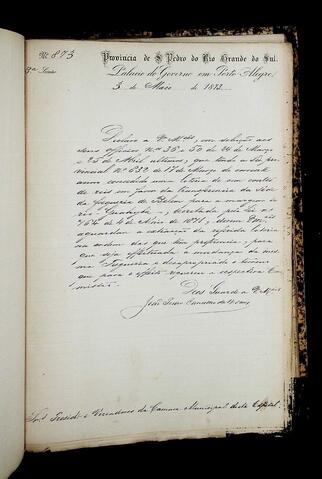 N. 873
Provincia de S. Pedro do Rio Grande do Sul.
3ª Secção
Palacio do Governo em Porto Alegre
3 de Maio de 1872
Declaro a Vmces, em solução aos
seus officios Nos 36 e 50 de 14 de Março
e 25 de Abril ultimos, que tendo a Lei pro
vincial Nº 832 de 17 de Março do corrente
anno concedido uma loteria de um conto
de reis em favor da transferencia da séde
da freguezia de Belem para a margem do
rio Guahyba, decretada pela lei Nº
764 de 4 de Maio de 1871, devem Vmces
aguardar a extracção da referida loteria
na ordem das que tem preferencia, para
que seja effectuada a mudança da mes
ma freguezia e desapropriado o terreno
que para o effeito requereu a respectiva Com
missão.
Deos Guarde a Vmces
Snrs. Presidte e Vereadores da Camara Municipal desta Capital.